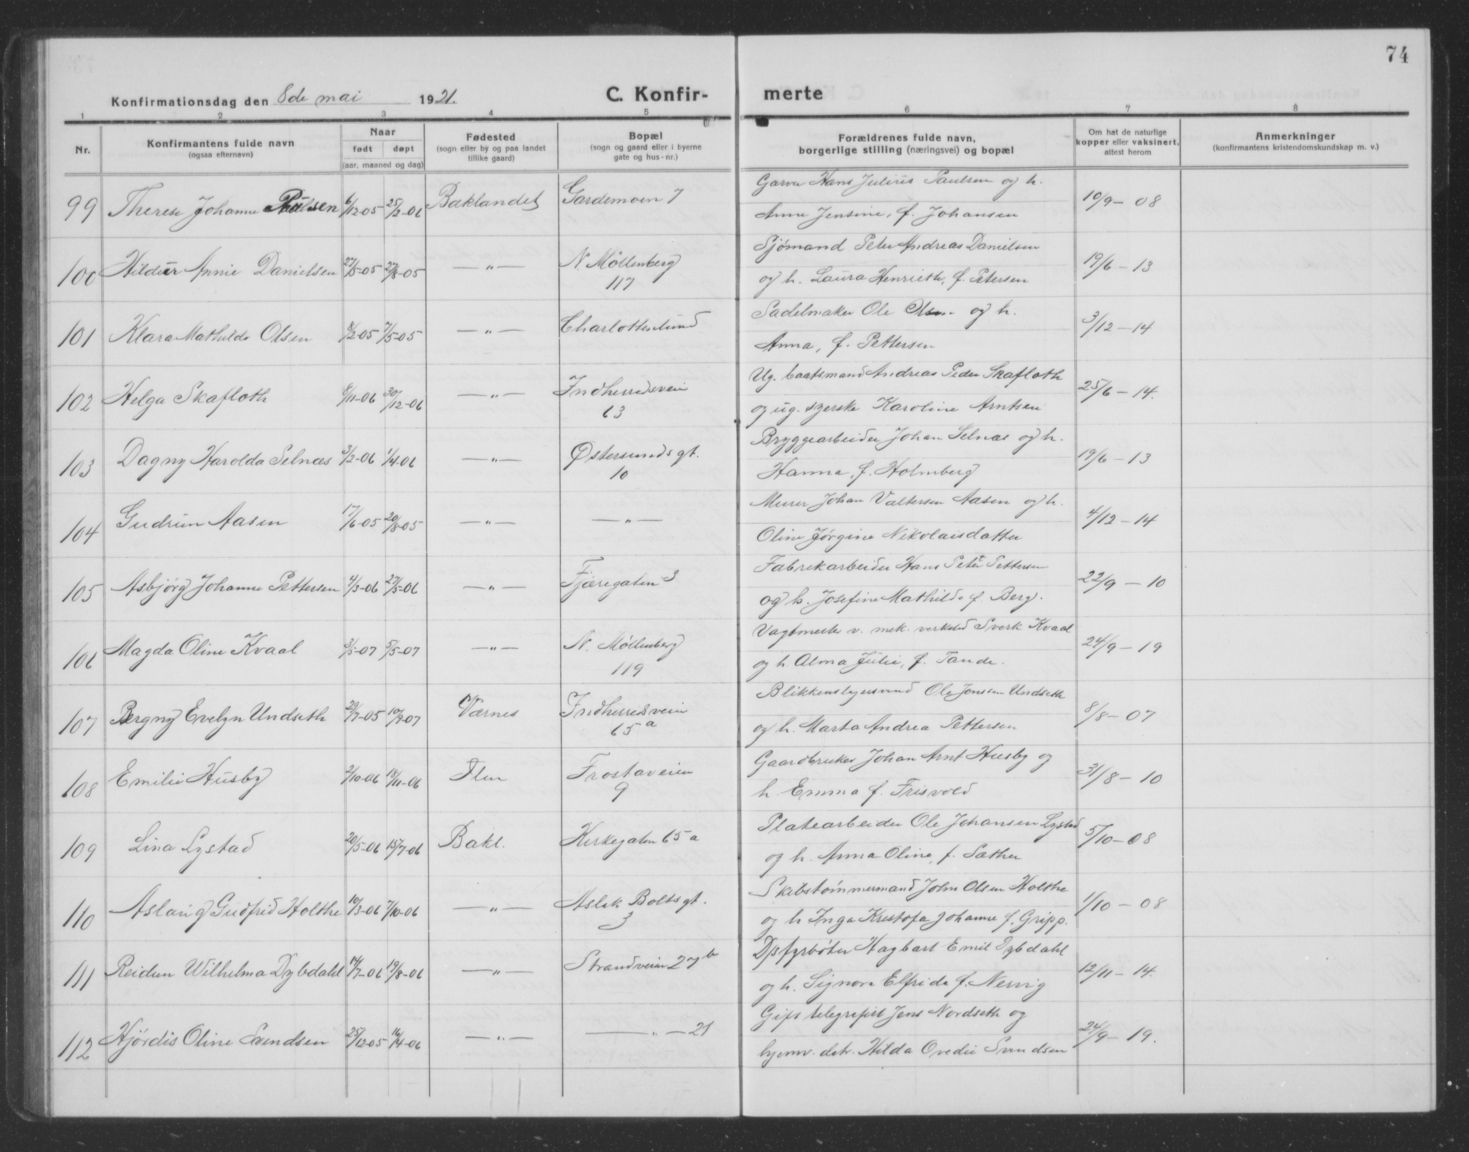 74
Konfirmationsdag den 8de mai 1921.
C. Konfir- merte
1 2 3 4 5 6 7 8
Nr.
Konfirmantens fulde navn
(ogsaa efternavn)
Naar
født døpt
(aar, maaned og dag)
Fødested
(sogn eller by og paa landet
tillike gaard)
Bopæl
(sogn og gaard eller i byerne
gate og hus-nr.)
Forældrenes fulde navn,
borgerlige stilling (næringsvei) og bopæl
Om hat de naturlige
kopper eller vaksinert,
attest herom
Anmerkninger
(konfirmantens kristendomskundskap m. v.)
99 Therese Johanne Paulsen 6/12-05 25/2-06 Baklandet Gardemoen 7 Garver Hans Julius Paulsen og h. 10/9-08
Anna Jensine, f. Johansen
100 Hildur Annie Danielsen 27/5-05 27/8-05 —"— N. Møllenberg Sjømand Peter Andreas Danielsen 19/6-13
117 og h. Laura Henriette, f. Petersen
101 Klara Mathilde Olsen /2-05 7/5-05 —"— Charlottenlund Sadelmaker Ole Olsen og h. 3/12-14
Anna, f. Pettersen
102 Helga Skafloth 8/11-06 30/12-06 —"— Indherredsveien Ug. baatsmand Andreas Peder Skafloth 25/6-14.
63 og ug. syerske Karoline Arntsen
103 Dagny Harolda Selnæs 3/2-06 1/4-06 —"— Østersundsgt. Bryggearbeider Johan Selnæs og h. 19/6-13
10 Hanna, f. Holmberg
104 Gudrun Aasen 17/6-05 20/8-05 —"— —"— Murer Johan Valtersen Aasen og h. 4/12-14
Oline Jørgine Nikolaisdatter
105 Asbjørg Johanne Pettersen 4/3-06 27/5-06 —"— Fjæregaten 3 Fabrikarbeider Hans Peter Pettersen 22/9-10
og h. Josefine Mathilde f. Berg.
106 Magda Oline Kvaal /3-07 5/5-07 —"— N. Møllenberg Vagtmester v. mek. verksted Sverk Kvaal 24/9-19
119 og h. Alma Julie, f. Tande.
107 Bergny Evelyn Undseth 29/7-05 10/2-07 Værnes Indherredsveien Blikkenslagersvend Ole Jonsen Undseth 8/8-07
65a og h. Marta Andrea Pettersen
108 Emilie Husby 2/10-06 18/11-06 Ilen Frostaveien Gaardbruker Johan Arnt Husby og 31/8-10
9 h. Emma f. Frisvold
109 Lina Lystad 20/5-06 15/7-06 Bakl. Kirkegaten 65a Platearbeider Ole Johansen Lystad 5/10-08
og h. Anna Oline, f. Sæther
110 Aslaug Gudfrid Holthe 10/3-06 7/10-06 —"— Aslak Boltsgt. Skibstømmermand John Olsen Holthe 1/10-08
3 og h. Inga Kristofa Johanne f. Gripp.
111 Reidun Wilhelma Dybdahl 14/7-06 19/8-06 —"— Strandveien 27b Dpsfyrbøter Hagbart Emil Dybdahl 12/11-14.
og h. Signora Elfrida f. Nervig
112 Hjørdis Oline Svendsen 25/12-05 16/4-06 —"— —"— 21 Gift telegrafist Jens Nordseth og 24/9-19.
hjemv. dtr. Hilda Ovedie Svendsen